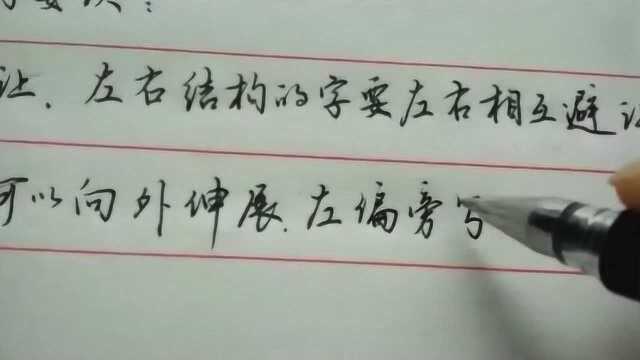 让．左右结构的字要左右相互避让
可以向外伸展．左偏旁写